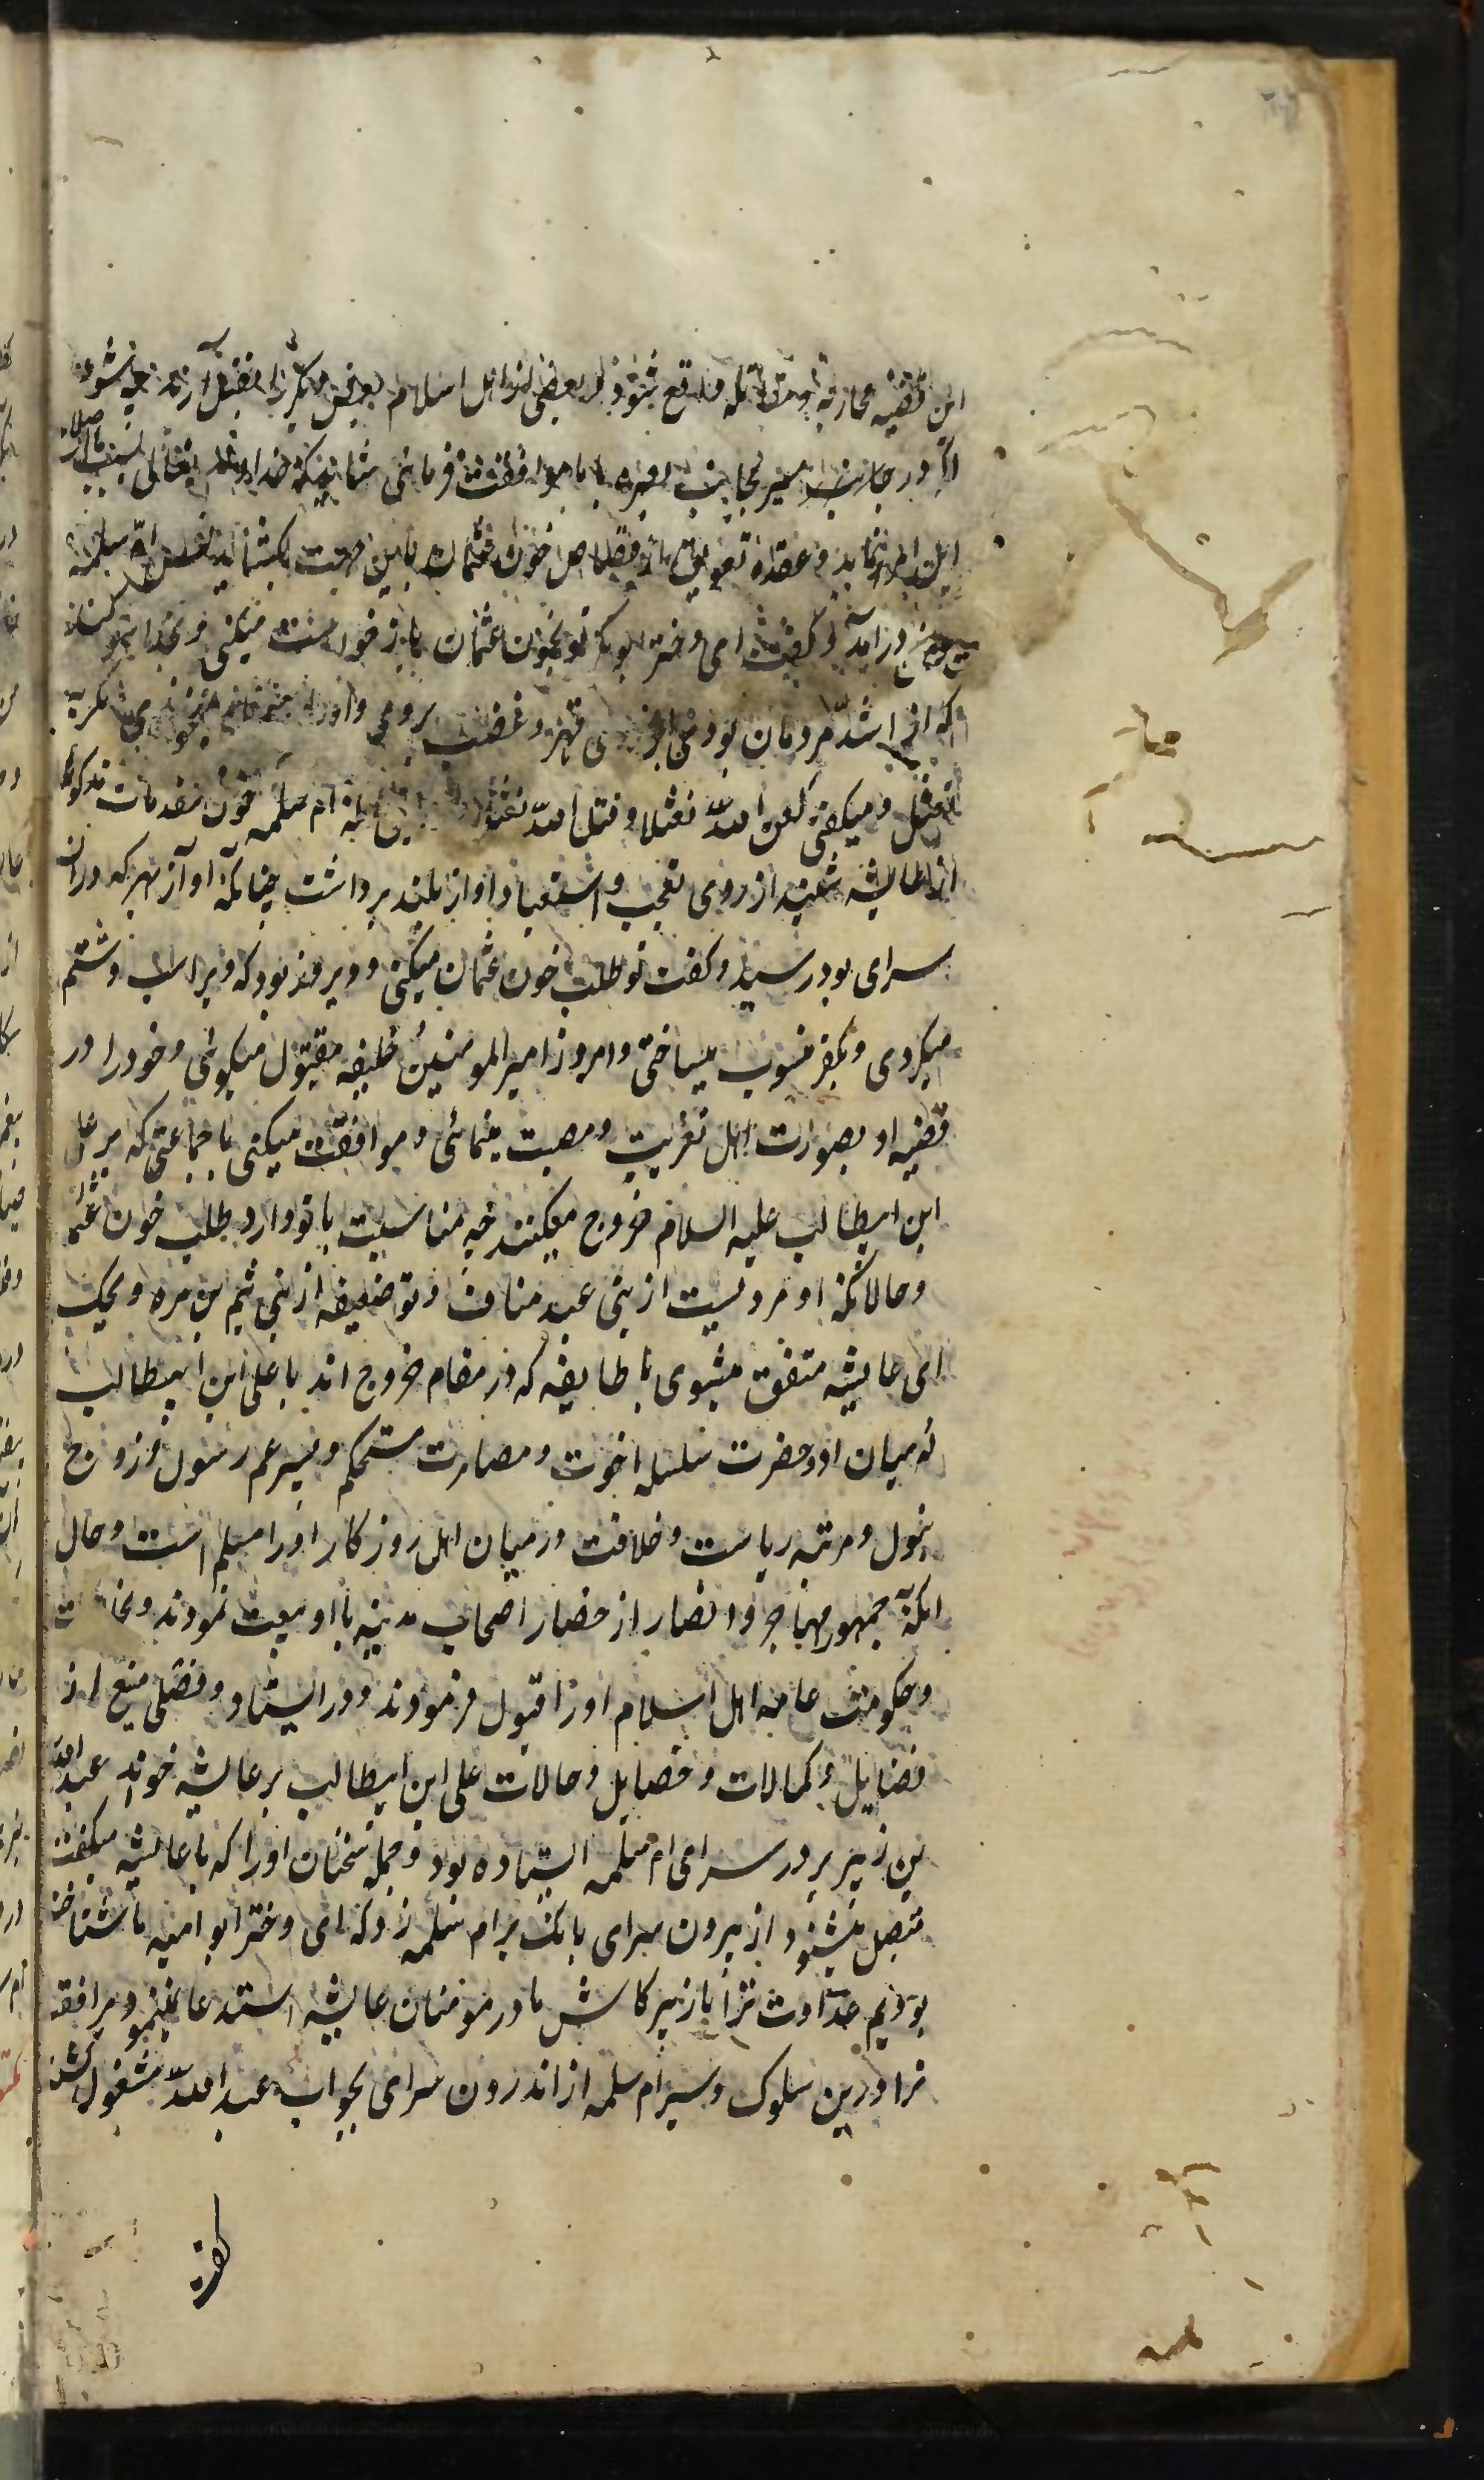 این قضیه محاربه و مقاتله واقع شود و بعضی از اهل اسلام بعض دیگر را بقتل آرند چه شود
اگر در جانب مسیر بجانب بصره با ما موافقت فرمائی شاید که خداوند تعالی بسبب ما اصلاح
این امر نماید و عقده تعویق از قصاص خون عثمان باین جهت بکشاید ام سلمه
در آمد و گفت ای دختر ابوبکر تو بخون عثمان باز خواست میکنی و بخدا سوگند
که از اشد مردمان بودی قهر و غضب بر وی و او را نمی خواندی مگر به
نعثل و میگفتی لعن الله نعثلا و قتل الله نعثلا ام سلمه چون مقدمات مذکوره
از عایشه شنید از روی تعجب و استبعاد آواز بلند برداشت چنانکه آواز بهر که در آن
سرای بود رسید و گفت تو طلب خون عثمان میکنی و دیروز بود که ویرا سب و شتم
میکردی و بکفر منسوب میساختی و امروز امیر المومنین خلیفه مقتول میگوئی و خود را در
قضیه او بصورت اهل تعزیت و مصیبت مینمائی و موافقت میکنی با جماعتی که بر علی
ابن ابیطالب علیه السلام خروج میکنند چه مناسبت با تو دارد طلب خون عثمان
و حالانکه او مردیست از بنی عبد مناف و تو ضعیفه از بنی تیم بن مره ویحک
ای عایشه متفق میشوی با طایفه که در مقام خروج اند با علی ابن ابیطالب
که میان او و حضرت سلسله اخوت و مصاهرت مستحکم و پسر عم رسول و زوج
بتول و مرتبه ریاست و خلافت در میان اهل روزکار او را مسلم است و حال
انکه جمهور مهاجر و انصار از حضار اصحاب مدینه با او بیعت نمودند و
و حکومت عامه اهل اسلام او را قبول فرمودند و در ایستاد و فصلی منیع از
فضایل و کمالات و خصایل و حالات علی ابن ابیطالب بر عایشه خواند عبد الله
بن زبیر بر در سرای ام سلمه ایستاده بود و جمله سخنان او را که با عایشه میگفت
متصل میشنود از بیرون سرای بانگ بر ام سلمه زد که ای دختر ابو امیه ما شناخته
بودیم عداوت ترا با زبیر کاش مادر مومنان عایشه استدعا نمینمود مرافقه
ترا درین سلوک و سیر ام سلمه از اندرون سرای بجواب عبد الله مشغول شد
گفت